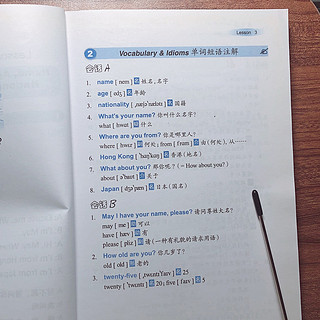 Lesson 3
2 Vocabulary & Idioms 单词短语注解
会话 A
1. name [ nem ] 名 姓名,名字
2. age [ edʒ ] 名 年龄
3. nationality [ ˌnæʃəˈnælətɪ ] 名 国籍
4. What's your name? 你叫什么名字?
what [ hwɑt ] 什么
5. Where are you from? 你是哪里人?
where [ hwɛr ] 何处; from [ frɑm ] 介 由(何处), 从……
6. Hong Kong [ ˈhɑŋˈkɑŋ ] 名 香港(地名)
7. What about you? 那你呢? (= How about you?)
about [ əˈbaʊt ] 介 关于
8. Japan [ dʒəˈpæn ] 名 日本(国名)
会话 B
1. May I have your name, please? 请问尊姓大名?
may [ me ] 可以
have [ hæv ] 有
please [ pliz ] 请(一种有礼貌的请求用语)
2. How old are you? 你几岁了?
old [ old ] 老的
3. twenty-five [ ˌtwɛntɪˈfaɪv ] 名 25
twenty [ ˈtwɛntɪ ] 名 20; five [ faɪv ] 名 5